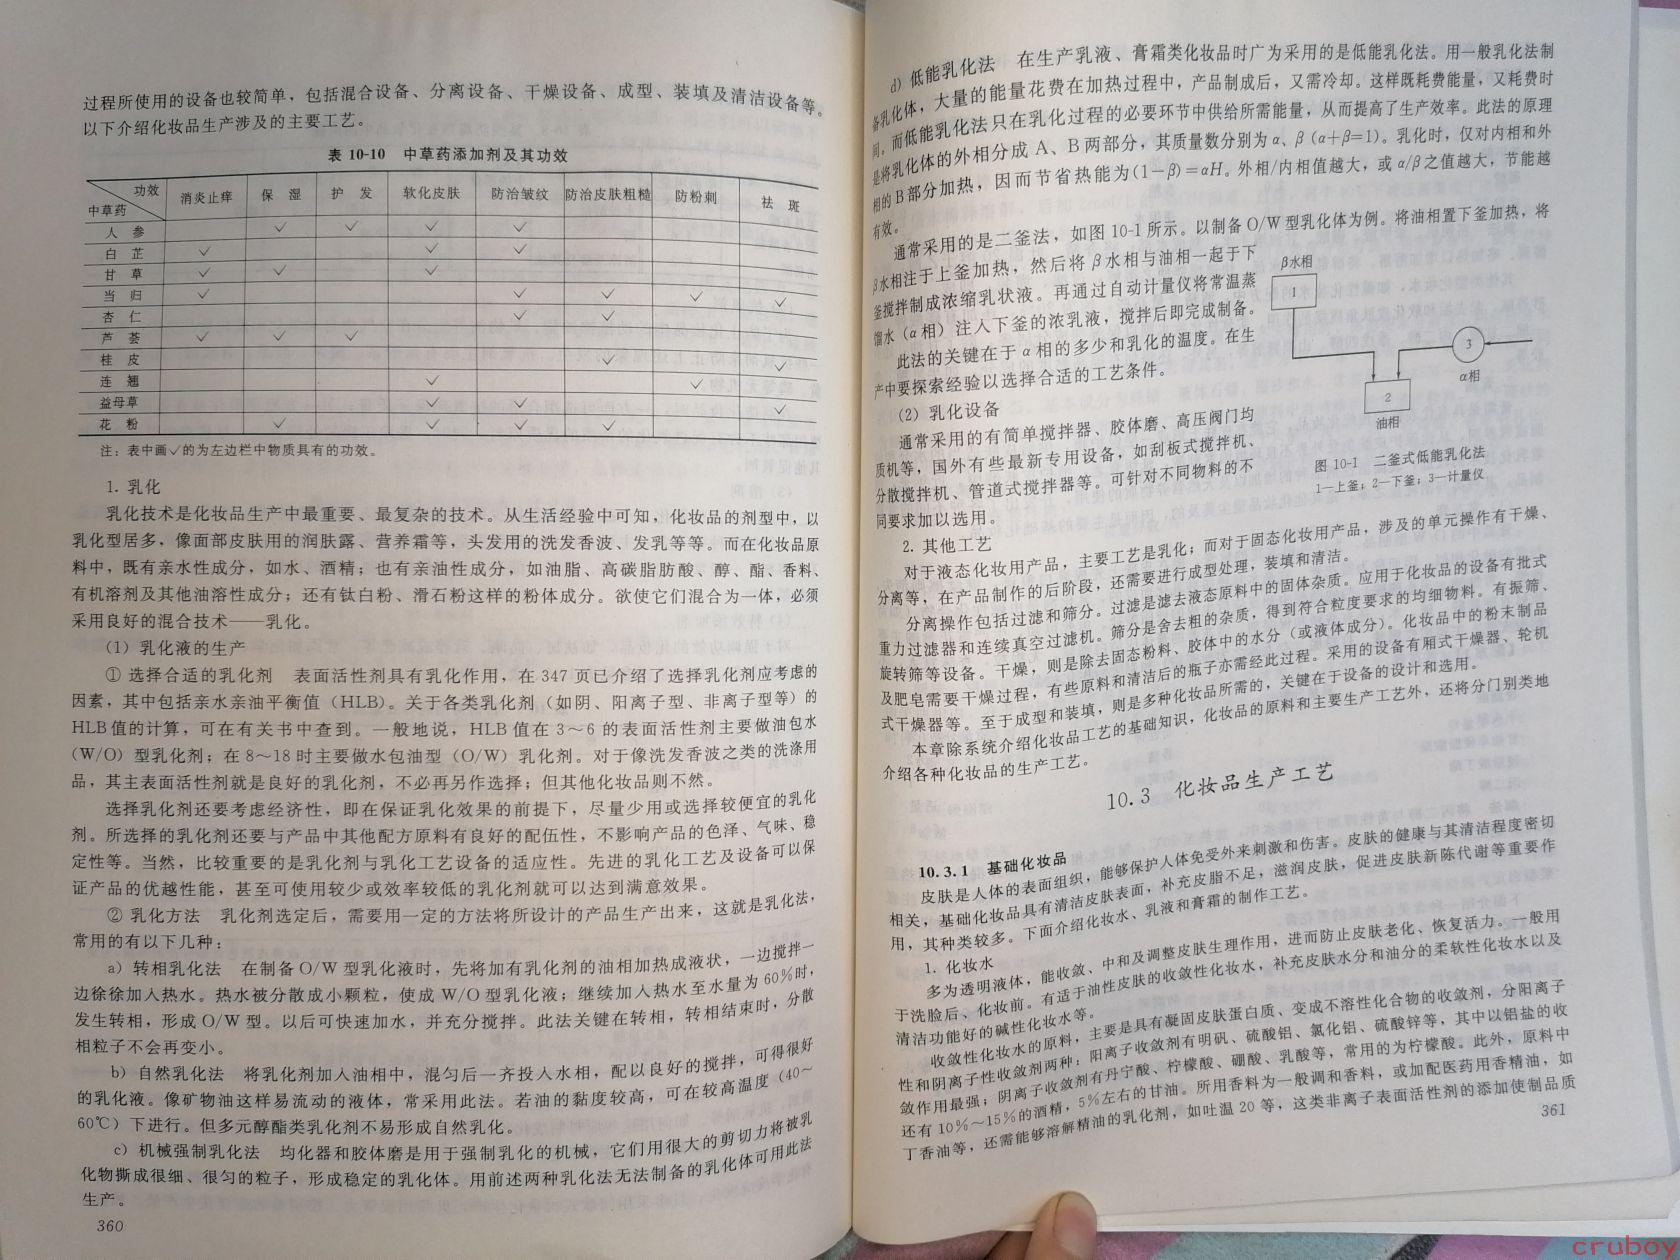 过程所使用的设备也较简单，包括混合设备、分离设备、干燥设备、成型、装填及清洁设备等。
以下介绍化妆品生产涉及的主要工艺。
表 10-10 中草药添加剂及其功效
功效 中草药 消炎止痒 保湿 护发 软化皮肤 防治皱纹 防治皮肤粗糙 防粉刺 祛斑
人参 ✓ ✓ ✓ ✓
白芷 ✓ ✓ ✓
甘草 ✓ ✓ ✓
当归 ✓ ✓ ✓ ✓ ✓
杏仁 ✓ ✓
芦荟 ✓ ✓ ✓
桂皮 ✓ ✓
连翘 ✓ ✓
益母草 ✓ ✓ ✓
花粉 ✓ ✓ ✓ ✓
注：表中画✓的为左边栏中物质具有的功效。
1. 乳化
乳化技术是化妆品生产中最重要、最复杂的技术。从生活经验中可知，化妆品的剂型中，以
乳化型居多，像面部皮肤用的润肤露、营养霜等，头发用的洗发香波、发乳等等。而在化妆品原
料中，既有亲水性成分，如水、酒精；也有亲油性成分，如油脂、高碳脂肪酸、醇、酯、香料、
有机溶剂及其他油溶性成分；还有钛白粉、滑石粉这样的粉体成分。欲使它们混合为一体，必须
采用良好的混合技术——乳化。
（1）乳化液的生产
① 选择合适的乳化剂 表面活性剂具有乳化作用，在 347 页已介绍了选择乳化剂应考虑的
因素，其中包括亲水亲油平衡值（HLB）。关于各类乳化剂（如阴、阳离子型、非离子型等）的
HLB 值的计算，可在有关书中查到。一般地说，HLB 值在 3～6 的表面活性剂主要做油包水
（W/O）型乳化剂；在 8～18 时主要做水包油型（O/W）乳化剂。对于像洗发香波之类的洗涤用
品，其主表面活性剂就是良好的乳化剂，不必再另作选择；但其他化妆品则不然。
选择乳化剂还要考虑经济性，即在保证乳化效果的前提下，尽量少用或选择较便宜的乳化
剂。所选择的乳化剂还要与产品中其他配方原料有良好的配伍性，不影响产品的色泽、气味、稳
定性等。当然，比较重要的是乳化剂与乳化工艺设备的适应性。先进的乳化工艺及设备可以保
证产品的优越性能，甚至可使用较少或效率较低的乳化剂就可以达到满意效果。
② 乳化方法 乳化剂选定后，需要用一定的方法将所设计的产品生产出来，这就是乳化法，
常用的有以下几种：
a）转相乳化法 在制备 O/W 型乳化液时，先将加有乳化剂的油相加热成液状，一边搅拌一
边徐徐加入热水。热水被分散成小颗粒，使成 W/O 型乳化液；继续加入热水至水量为 60％时，
发生转相，形成 O/W 型。以后可快速加水，并充分搅拌。此法关键在转相，转相结束时，分散
相粒子不会再变小。
b）自然乳化法 将乳化剂加入油相中，混匀后一齐投入水相，配以良好的搅拌，可得很好
的乳化液。像矿物油这样易流动的液体，常采用此法。若油的黏度较高，可在较高温度（40～
60℃）下进行。但多元醇酯类乳化剂不易形成自然乳化。
c）机械强制乳化法 均化器和胶体磨是用于强制乳化的机械，它们用很大的剪切力将被乳
化物撕成很细、很匀的粒子，形成稳定的乳化体。用前述两种乳化法无法制备的乳化体可用此法
生产。
360
d）低能乳化法 在生产乳液、膏霜类化妆品时广为采用的是低能乳化法。用一般乳化法制
备乳化体，大量的能量花费在加热过程中，产品制成后，又需冷却。这样既耗费能量，又耗费时
间。而低能乳化法只在乳化过程的必要环节中供给所需能量，从而提高了生产效率。此法的原理
是将乳化体的外相分成 A、B 两部分，其质量数分别为 α、β（α+β=1）。乳化时，仅对内相和外
相的 B 部分加热，因而节省热能为(1－β)＝αH。外相/内相值越大，或 α/β 之值越大，节能越
有效。
通常采用的是二釜法，如图 10-1 所示。以制备 O/W 型乳化体为例。将油相置下釜加热，将
β水相注于上釜加热，然后将 β 水相与油相一起于下
釜搅拌制成浓缩乳状液。再通过自动计量仪将常温蒸
馏水（α 相）注入下釜的浓乳液，搅拌后即完成制备。
此法的关键在于 α 相的多少和乳化的温度。在生
产中要探索经验以选择合适的工艺条件。
（2）乳化设备
通常采用的有简单搅拌器、胶体磨、高压阀门均
质机等，国外有些最新专用设备，如刮板式搅拌机、
分散搅拌机、管道式搅拌器等。可针对不同物料的不
同要求加以选用。
β水相
1
3
α相
2
油相
图 10-1 二釜式低能乳化法
1—上釜；2—下釜；3—计量仪
2. 其他工艺
对于液态化妆用产品，主要工艺是乳化；而对于固态化妆用产品，涉及的单元操作有干燥、
分离等，在产品制作的后阶段，还需要进行成型处理，装填和清洁。
分离操作包括过滤和筛分。过滤是滤去液态原料中的固体杂质。应用于化妆品的设备有批式
重力过滤器和连续真空过滤机。筛分是舍去粗的杂质，得到符合粒度要求的均细物料。有振筛、
旋转筛等设备。干燥，则是除去固态粉料、胶体中的水分（或液体成分）。化妆品中的粉末制品
及肥皂需要干燥过程，有些原料和清洁后的瓶子亦需经此过程。采用的设备有厢式干燥器、轮机
式干燥器等。至于成型和装填，则是多种化妆品所需的，关键在于设备的设计和选用。
本章除系统介绍化妆品工艺的基础知识，化妆品的原料和主要生产工艺外，还将分门别类地
介绍各种化妆品的生产工艺。
10.3 化妆品生产工艺
10.3.1 基础化妆品
皮肤是人体的表面组织，能够保护人体免受外来刺激和伤害。皮肤的健康与其清洁程度密切
相关，基础化妆品具有清洁皮肤表面，补充皮脂不足，滋润皮肤，促进皮肤新陈代谢等重要作
用，其种类较多。下面介绍化妆水、乳液和膏霜的制作工艺。
1. 化妆水
多为透明液体，能收敛、中和及调整皮肤生理作用，进而防止皮肤老化、恢复活力。一般用
于洗脸后、化妆前。有适于油性皮肤的收敛性化妆水，补充皮肤水分和油分的柔软性化妆水以及
清洁功能好的碱性化妆水等。
收敛性化妆水的原料，主要是具有凝固皮肤蛋白质、变成不溶性化合物的收敛剂，分阳离子
性和阴离子性收敛剂两种：阳离子收敛剂有明矾、硫酸铝、氯化铝、硫酸锌等，其中以铝盐的收
敛作用最强；阴离子收敛剂有丹宁酸、柠檬酸、硼酸、乳酸等，常用的为柠檬酸。此外，原料中
还有 10％～15％的酒精，5％左右的甘油。所用香料为一般调和香料，或加配医药用香精油，如
丁香油等，还需能够溶解精油的乳化剂，如吐温 20 等，这类非离子表面活性剂的添加使制品质
361
cruboy